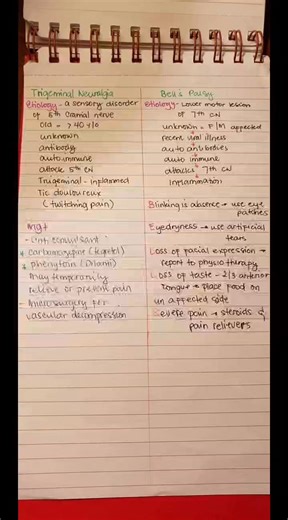 Trigeminal Neuralgia
Etiology - a sensory disorder
of 5th Cranial nerve
Old = > 40 y/o
unknown
antibody
auto immune
attack 5th CN
Trigeminal - inflammed
Tic douloureux
(twitching pain)
Mngt
- Anti convulsant
* Carbamazepine (tegretol)
* phenytoin (Dilantin)
may temporarily
relieve or prevent pain
- Microsurgery for
vascular decompression
Bell's Palsy
Etiology - Lower motor lesion
of 7th CN
unknown = F/M affected
recent viral illness
auto antibodies
auto immune
attacks 7th CN
Inflammation
Blinking is absence → use eye
patches
Eyedryness → use artificial
tears
Loss of facial expression →
report to physiotherapy
Loss of taste - 2/3 anterior
tongue → place food on
un affected side
Severe pain → steroids &
pain relievers